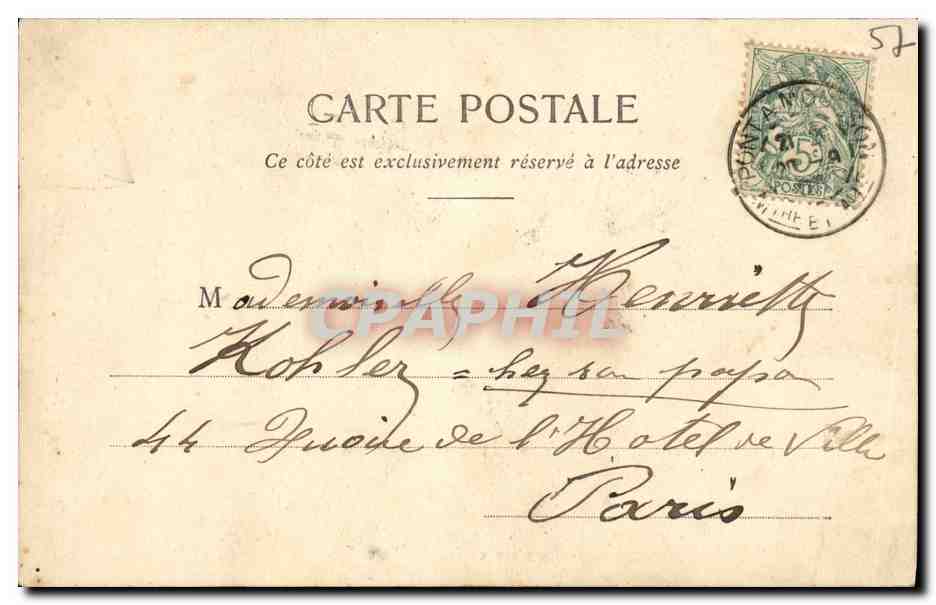 57
CARTE POSTALE
Ce côté est exclusivement réservé à l'adresse
5
POSTES
PONT A MOUSSON
CPAPHIL
Mademoiselle Henriette
Kohler = chez son papa
44 Quai de l'Hotel de Ville
Paris